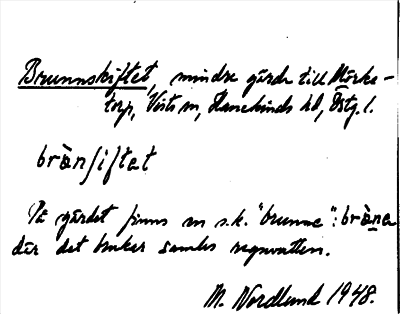 Brunnskiftet, mindre gärde till Mörke-
torp, Vists sn, Hanekinds hd, Östg. l.
brȧnʃiftet
På gärdet finns en s.k. "brunne": brȧna
där det brukar samlas regnvatten.
M. Nordlund 1948.